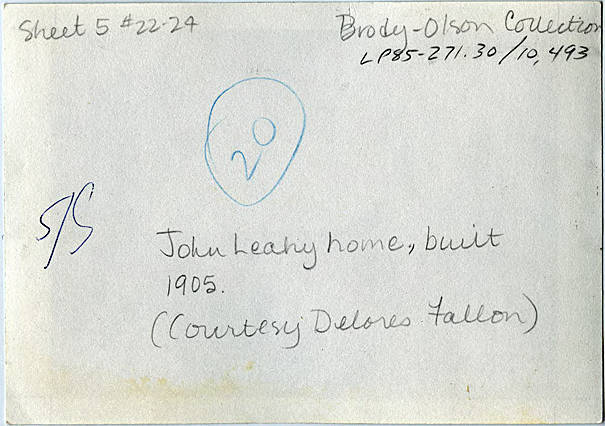 Sheet 5 #22-24
Brody-Olson Collection
LP85-271.30/10,493
20
S/S
John Leahy home, built
1905.
(Courtesy Delores Fallon)